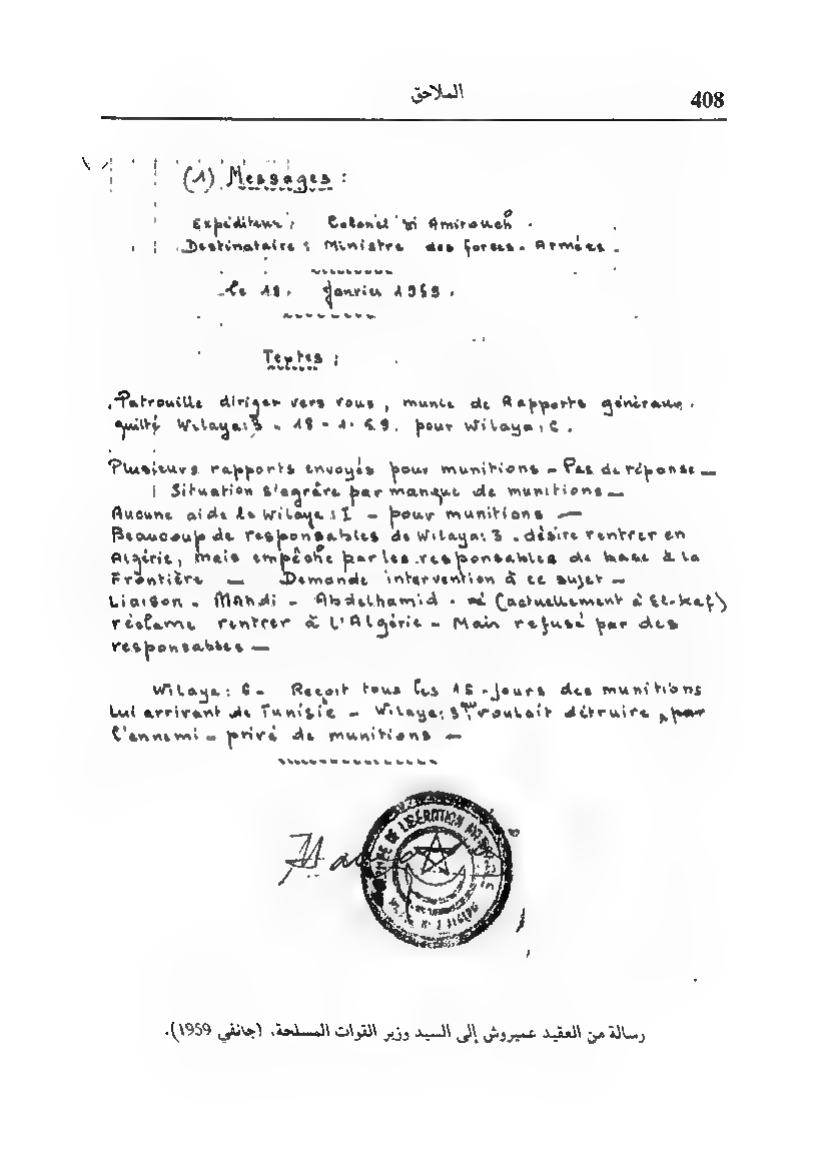 الملاحق
408
(1) Messages :
Expéditeur : Colonel Si Amirouch .
Destinataire : Ministre des forces - Armées .
le 18 . Janvier 1959 .
Textes :
Patrouille diriger vers vous , munie de Rapports généraux .
quitté Wilaya:3 - 18 - 1 - 59 . pour Wilaya:6 .
Plusieurs rapports envoyés pour munitions - Pas de réponse -
Situation s'agrâre par manque de munitions -
Aucune aide de Wilaya : I - pour munitions -
Beaucoup de responsables de Wilaya: 3 . désire rentrer en
Algérie, mais empêché par les responsables de base à la
Frontière - Demande intervention à ce sujet -
Liaison - Mahdi - Abdelhamid - (actuellement à El-Kef)
réclame rentrer à l'Algérie - Mais refusé par des
responsables -
Wilaya : 6 - Reçoit tous les 15 - Jours des munitions
lui arrivant de Tunisie - Wilaya: 3 voulait détruire par
l'ennemi - privé de munitions -
ARMEE DE LIBERATION NATIONALE
رسالة من العقيد عميروش إلى السيد وزير القوات المسلحة. (جانفي 1959).